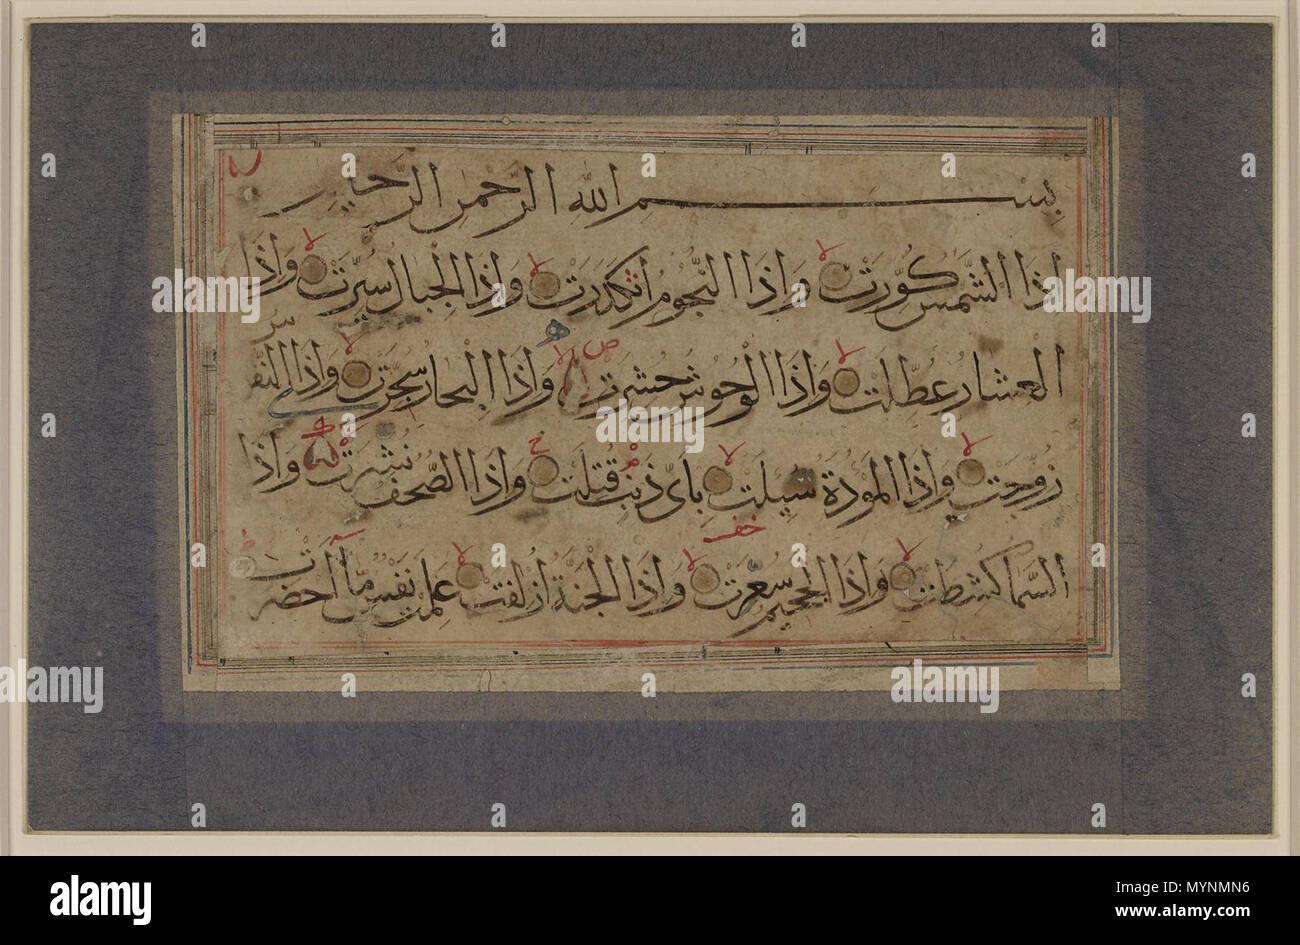 بِسْمِ اللهِ الرَّحْمٰنِ الرَّحِيمِ
اِذَا الشَّمْسُ كُوِّرَتْ وَاِذَا النُّجُومُ انْكَدَرَتْ وَاِذَا الْجِبَالُ سُيِّرَتْ وَاِذَا
الْعِشَارُ عُطِّلَتْ وَاِذَا الْوُحُوشُ حُشِرَتْ وَاِذَا الْبِحَارُ سُجِّرَتْ وَاِذَا النُّفُوسُ
زُوِّجَتْ وَاِذَا الْمَوْدَةُ سُيِلَتْ بِاَىِّ ذَنْبٍ قُتِلَتْ وَاِذَا الصُّحُفُ نُشِرَتْ وَاِذَا
السَّمَا كُشِطَتْ وَاِذَا الْجَحِيمُ سُعِّرَتْ وَاِذَا الْجَنَّةُ اُزْلِفَتْ عَلِمَتْ نَفْسٌ مَّا اَحْضَرَتْ
alamy
Image ID: MYNMN6
www.alamy.com